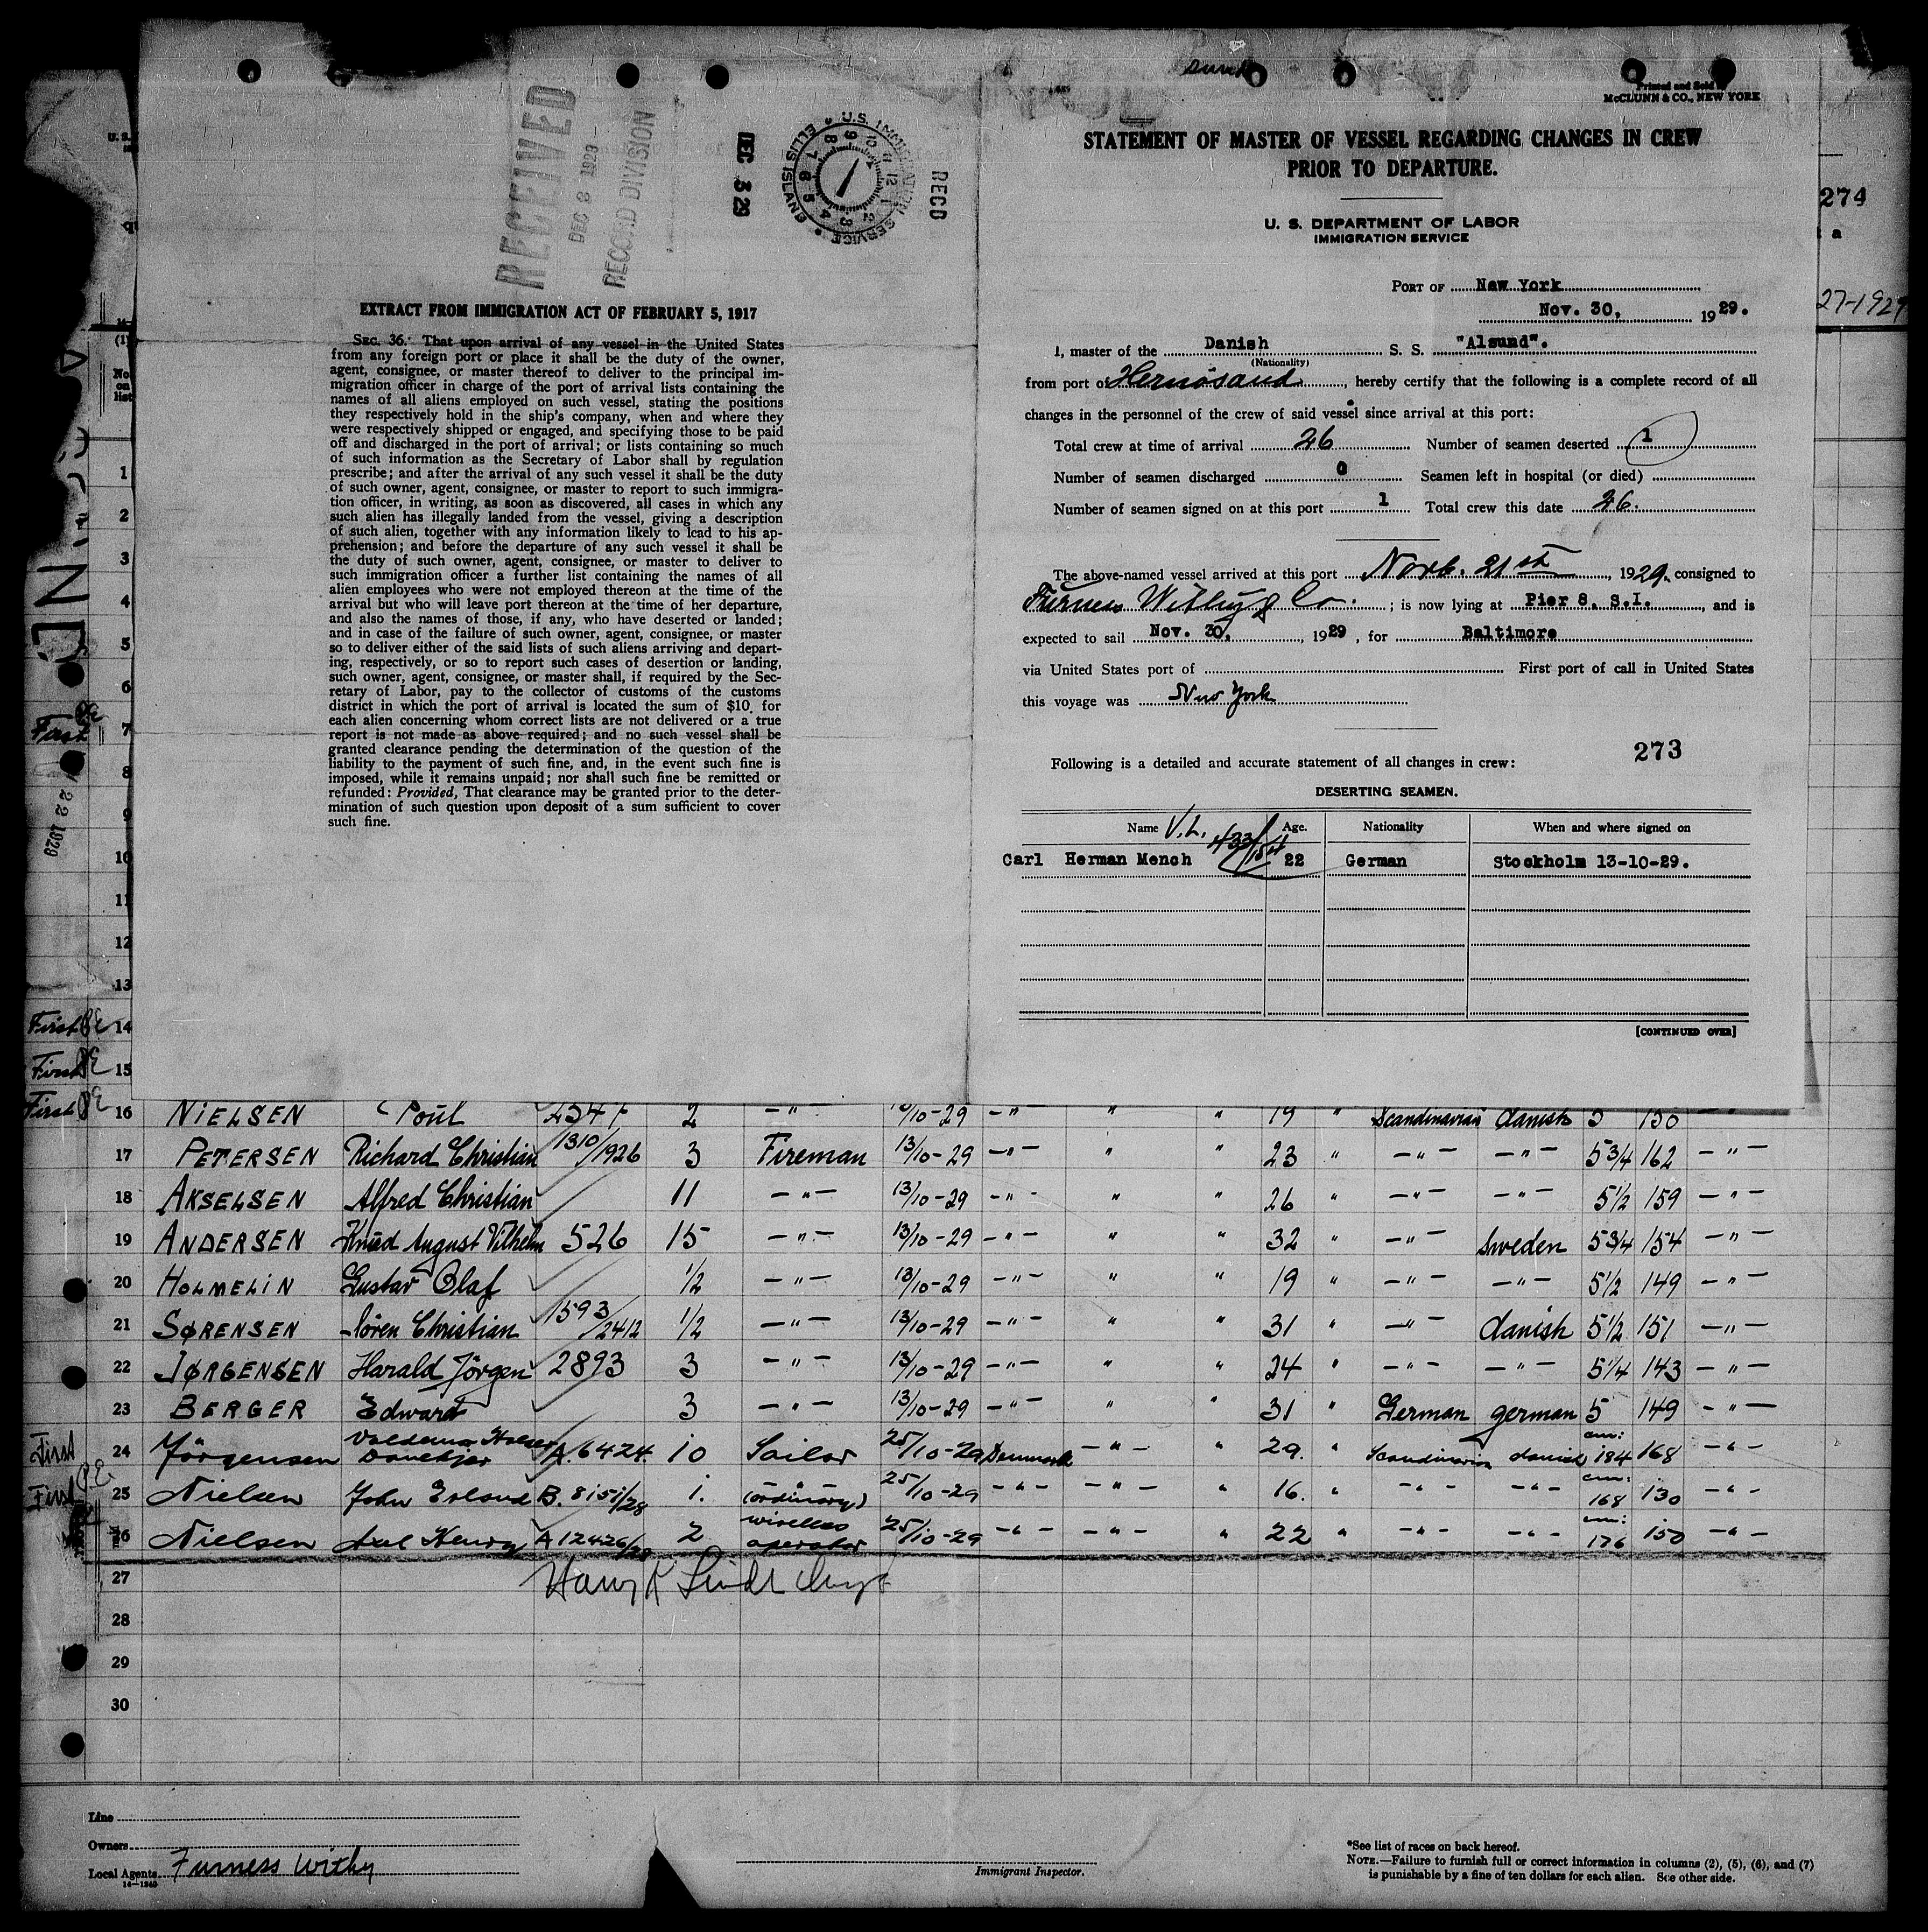 RECEIVED
DEC 8 1929
RECORD DIVISION
DEC 3 29
U.S. IMMIGRATION SERVICE
ELLIS ISLAND
RECD
EXTRACT FROM IMMIGRATION ACT OF FEBRUARY 5, 1917
SEC. 36. That upon arrival of any vessel in the United States
from any foreign port or place it shall be the duty of the owner,
agent, consignee, or master thereof to deliver to the principal im-
migration officer in charge of the port of arrival lists containing the
names of all aliens employed on such vessel, stating the positions
they respectively hold in the ship's company, when and where they
were respectively shipped or engaged, and specifying those to be paid
off and discharged in the port of arrival; or lists containing so much
of such information as the Secretary of Labor shall by regulation
prescribe; and after the arrival of any such vessel it shall be the duty
of such owner, agent, consignee, or master to report to such immigra-
tion officer, in writing, as soon as discovered, all cases in which any
such alien has illegally landed from the vessel, giving a description
of such alien, together with any information likely to lead to his ap-
prehension; and before the departure of any such vessel it shall be
the duty of such owner, agent, consignee, or master to deliver to
such immigration officer a further list containing the names of all
alien employees who were not employed thereon at the time of the
arrival but who will leave port thereon at the time of her departure,
and also the names of those, if any, who have deserted or landed;
and in case of the failure of such owner, agent, consignee, or master
so to deliver either of the said lists of such aliens arriving and depart-
ing, respectively, or so to report such cases of desertion or landing,
such owner, agent, consignee, or master shall, if required by the Sec-
retary of Labor, pay to the collector of customs of the customs
district in which the port of arrival is located the sum of $10 for
each alien concerning whom correct lists are not delivered or a true
report is not made as above required; and no such vessel shall be
granted clearance pending the determination of the question of the
liability to the payment of such fine, and, in the event such fine is
imposed, while it remains unpaid; nor shall such fine be remitted or
refunded: Provided, That clearance may be granted prior to the deter-
mination of such question upon deposit of a sum sufficient to cover
such fine.
Printed and Sold by
McCLUNN & CO., NEW YORK
STATEMENT OF MASTER OF VESSEL REGARDING CHANGES IN CREW
PRIOR TO DEPARTURE.
U. S. DEPARTMENT OF LABOR
IMMIGRATION SERVICE
PORT OF New York
Nov. 30, 1929.
I, master of the Danish S. S. "Alsund".
(Nationality)
from port of Hernösand, hereby certify that the following is a complete record of all
changes in the personnel of the crew of said vessel since arrival at this port:
Total crew at time of arrival 26 Number of seamen deserted 1
Number of seamen discharged 0 Seamen left in hospital (or died)
Number of seamen signed on at this port 1 Total crew this date 26.
The above-named vessel arrived at this port Novb. 21st, 1929, consigned to
Furness Withy & Co.; is now lying at Pier 8, S.I., and is
expected to sail Nov. 30, 1929, for Baltimore
via United States port of First port of call in United States
this voyage was New York
273
Following is a detailed and accurate statement of all changes in crew:
DESERTING SEAMEN.
Name V.L. Age. Nationality When and where signed on
Carl Herman Mench 22 German Stockholm 13-10-29.
[CONTINUED OVER]
274
27-1929
22 1929
1
2
3
4
5
6
First 7
8
9
10
11
12
13
First PE 14
First PE 15
First PE 16 NIELSEN Poul 2 -"- 13/10-29 -"- " " 19 " Scandinavian danish 5 150 -"-
17 PETERSEN Richard Christian 1310/1926 3 Fireman 13/10-29 -"- " " 23 " -"- -"- 5 3/4 162 -"-
18 AKSELSEN Alfred Christian 11 -"- 13/10-29 -"- " " 26 " -"- -"- 5 1/2 159 -"-
19 ANDERSEN Knud August Vilhelm 526 15 -"- 13/10-29 -"- " " 32 " -"- Sweden 5 3/4 154 -"-
20 HOLMELIN Gustav Olaf 1/2 -"- 13/10-29 -"- " " 19 " -"- -"- 5 1/2 149 -"-
21 SØRENSEN Sören Christian 1593/2412 1/2 -"- 13/10-29 -"- " " 31 " -"- danish 5 1/2 151 -"-
22 JØRGENSEN Harald Jörgen 2893 3 -"- 13/10-29 -"- " " 24 " -"- -"- 5 1/4 143 -"-
23 BERGER Edward 3 -"- 13/10-29 -"- " " 31 " German german 5 149 -"-
First 24 Jörgensen A.6424. 10 Sailor 25/10-29 Denmark -"- " 29. " Scandinavian danish cm: 184 168 -"-
First PE 25 Nielsen John Erland B. 8151/28 1. (ordinary) 25/10-29 -"- -"- " 16. " -"- -"- cm: 168 130 -"-
26 Nielsen Axel Henry A 12426/28 2 wireless operator 25/10-29 -"- -"- " 22 " -"- -"- cm: 176 150 -"-
27
28
29
30
Line
Owners
Local Agents Furness Withy
14-1240
Immigrant Inspector.
*See list of races on back hereof.
NOTE.—Failure to furnish full or correct information in columns (2), (5), (6), and (7)
is punishable by a fine of ten dollars for each alien. See other side.